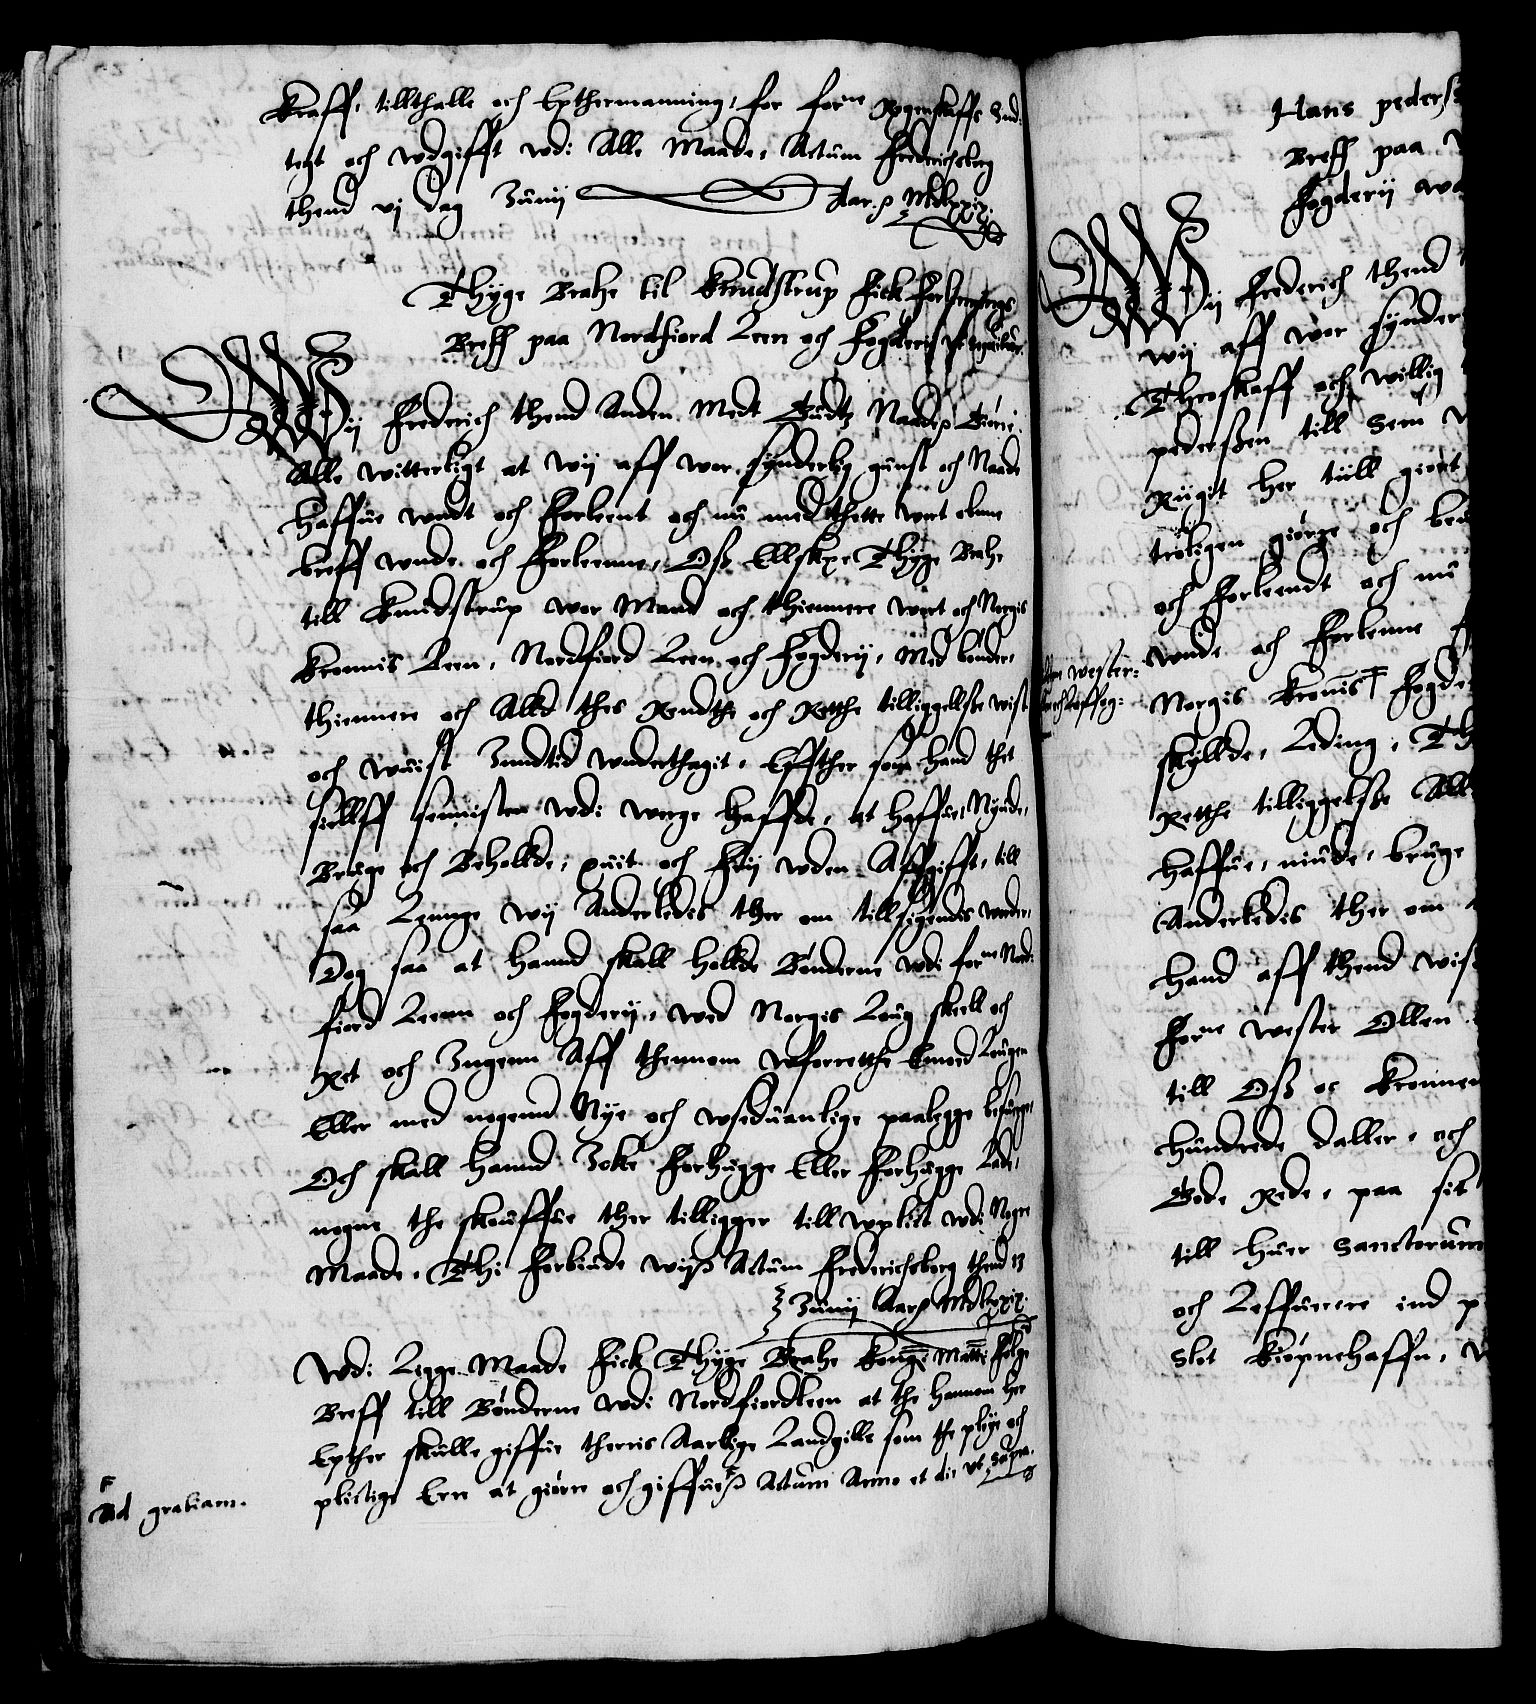 Kraff, tillthalle och Epthermanning, for for:ne Regenskaffs Ind:
tegt och wdgifft wdi Alle Maade, Actum Frederichsborg
thend vj dag Junij Aar p MDlxxix.
Thyge Brahe til Knudstrup fick Forleenings
Breff paa Nordfiord Leen och Fogderij
Wij Frederich thend Anden Medt Gudtz Naade p Giøre
Alle witterligt at wij aff wor synderlig gunst och Naade
Haffue wndt och Forleent och nu med thette wort obne
breff wnde och Forleenne, Oß Ellskpe Thyge Brahe
till Knudstrup wor Mand och thiennere wort och Norgis
Kronnis Leen, Nordfiord Leen och Fogderij, Med bønder,
thiennere och Alld thes Rendthe och Retthe tilliggellße wist
och wuist Inndtid wnderthagit, Effther som hand thet
siellff sennisten wdi werge haffde, at haffue, Nyude,
Bruge och Beholde, quit och Frij wden Affgifft, till
saa Lennge wij Anderledis ther om tillsigendis worder,
Dog saa at hannd skall holde Bønderne wdi for:ne Nord:
fiord Leenn och Fogderij, wed Norgis Loug skeell och
Ret och Ingenn Aff thennom wforretthe Emod Lougen
Eller med nogennd Nye och wseduanlige paalegge besuerge,
Och skall hannd Icke Forhugge Eller Forhugge Lade,
nogne the skouffue ther tilligger till wplict wdi Nogre
Maade, Thi Forbiude wij p Actum Frederichsborg thend 13
Junij Aar p MDlxxix.
Wdi Ligge Maade fick Thyge Brahe Konge Matti Følge
Breff till Bønderne wdi Nordfiordleen at the hannom her
Epther skulle giffue therris Aarlige Landgille som the pleye och
plictige Ere at giøre och giffue p Actum Anno et die vt supra.
Ad gratiam.
Hans pederß
Breff paa
Fogderij
Wij Frederich thend
wij aff wor synder
Throskaff och willig
pederßen till Sem
Riigit her till giort
troligen giørge och
och Forleendt och nu
wnde och Forlenne
wester:
Norgis Kronis Fogde
skyllde, Leding,
Retthe tilliggelße Alle
haffue, niude, bruge
Anderledis ther om
hand aff thend wiß
for:ne wester Ollen
till Oß oc Kronnen
hundrede daller, och
Gode Rede, paa sit
till huer Sanctorum
och Leffuerere ind p
Slot Kiøpnehaffn,